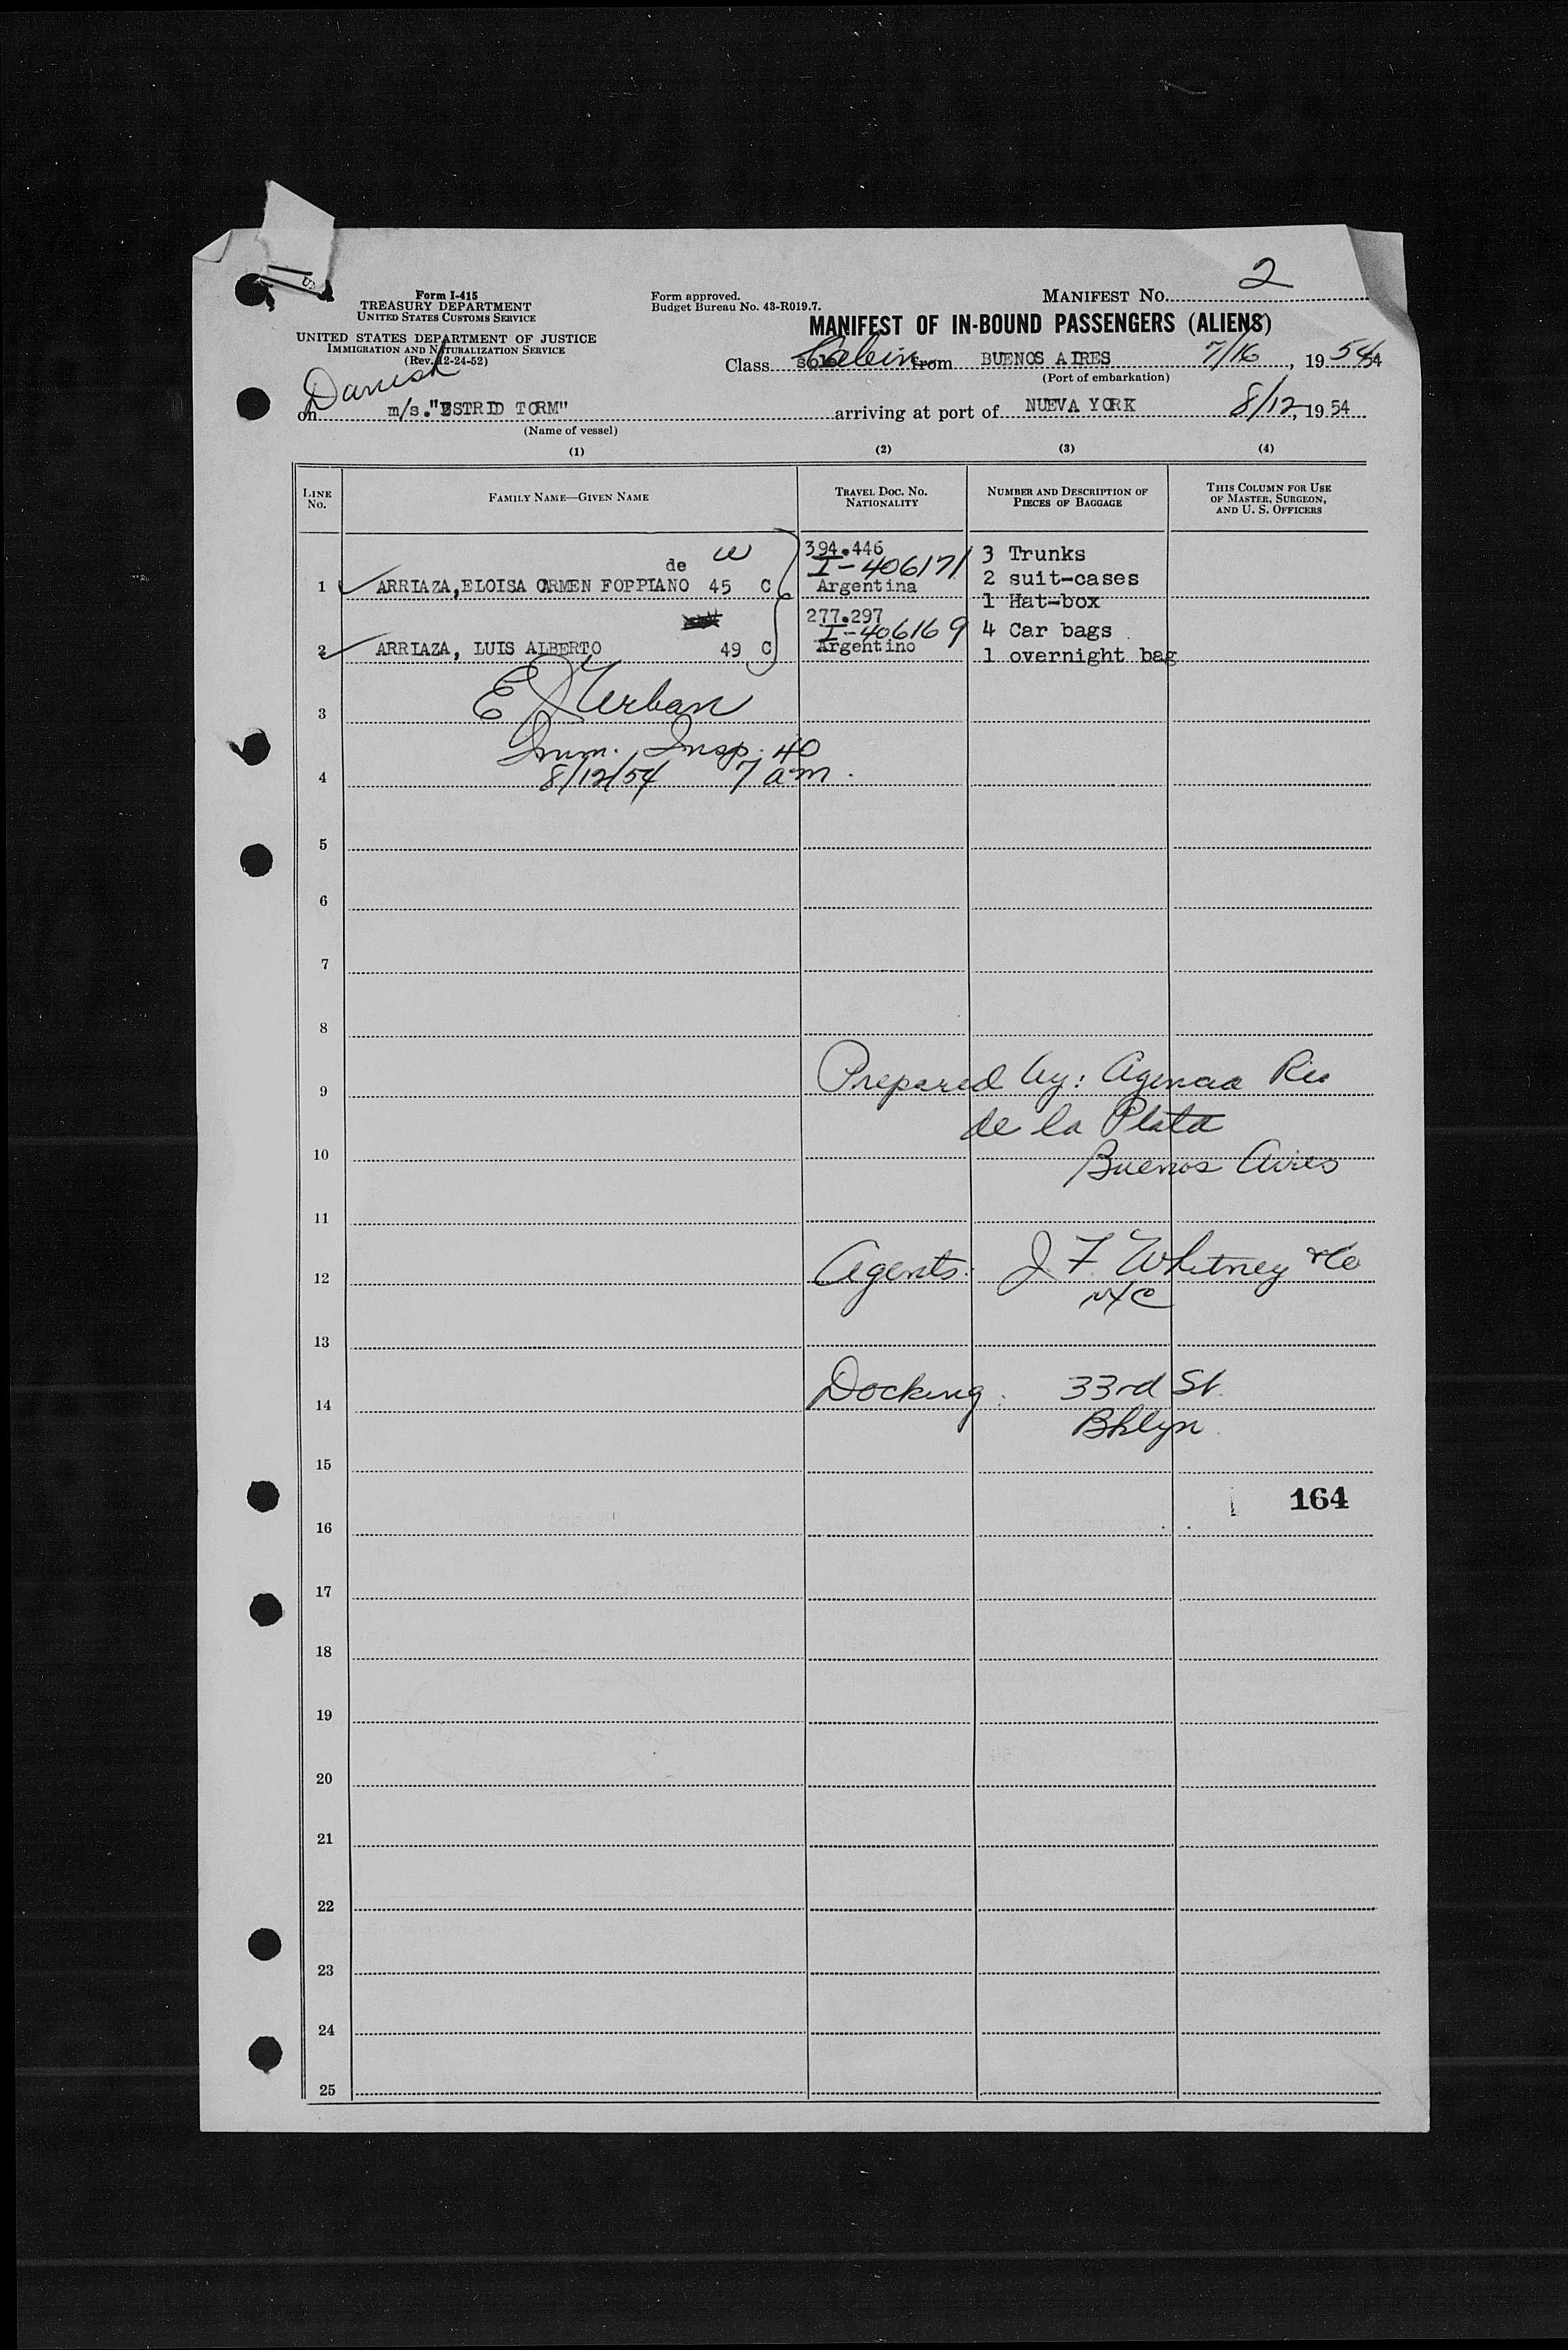 2
Form I-415
TREASURY DEPARTMENT
UNITED STATES CUSTOMS SERVICE
Form approved.
Budget Bureau No. 43-R019.7.
MANIFEST NO.
UNITED STATES DEPARTMENT OF JUSTICE
IMMIGRATION AND NATURALIZATION SERVICE
(Rev. 12-24-52)
MANIFEST OF IN-BOUND PASSENGERS (ALIENS)
Class Cabin from BUENOS AIRES 7/16, 1954
(Port of embarkation)
Danish
on m/s."ESTRID TORM" arriving at port of NUEVA YORK 8/12, 1954
(Name of vessel)
(1) (2) (3) (4)
LINE No. FAMILY NAME—GIVEN NAME TRAVEL DOC. NO. NATIONALITY NUMBER AND DESCRIPTION OF PIECES OF BAGGAGE THIS COLUMN FOR USE OF MASTER, SURGEON, AND U. S. OFFICERS
394.446 3 Trunks
de W I-406171 2 suit-cases
1 ARRIAZA,ELOISA CARMEN FOPPIANO 45 C Argentina
1 Hat-box
277.297
I-406169 4 Car bags
2 ARRIAZA, LUIS ALBERTO 49 C Argentino
1 overnight bag
E J Urban
3
Imm. Insp. 40
8/12/54 7 am.
4
5
6
7
8
Prepared by: Agencia Rio
9
de la Plata
10
Buenos Aires
11
Agents: J F Whitney & Co
12
NYC
13
Docking: 33rd St.
14
Bklyn
15
164
16
17
18
19
20
21
22
23
24
25